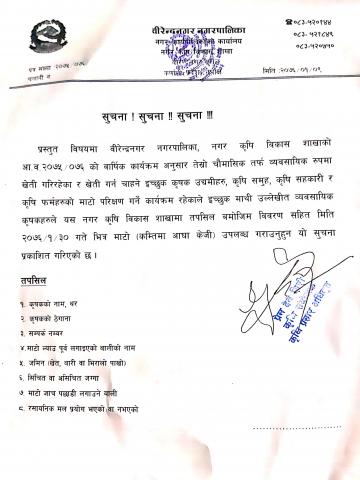 वीरेन्द्रनगर नगरपालिका
नगर कार्यपालिकाको कार्यालय
नगर कृषि विकास शाखा
☎०८३-५२१९४४
०८३-५२१८५९
०८३-५२०५१०
पत्र संख्या :२०७५/०७६
चलानी नं
मिति :२०७६/०१/०९
सुचना ! सुचना !! सुचना !!!
प्रस्तुत विषयमा वीरेन्द्रनगर नगरपालिका, नगर कृषि विकास शाखाको
आ.व.२०७५/०७६ को वार्षिक कार्यक्रम अनुसार तेस्रो चौमासिक तर्फ व्यवसायिक रुपमा
खेती गरिरहेका र खेती गर्न चाहने इच्छुक कृषक उद्यमीहरु, कृषि समुह, कृषि सहकारी र
कृषि फर्महरुको माटो परिक्षण गर्ने कार्यक्रम रहेकाले इच्छुक माथी उल्लेखीत व्यवसायिक
कृषकहरुले यस नगर कृषि विकास शाखामा तपसिल बमोजिम विवरण सहित मिति
२०७६/१/३० गते भित्र माटो (कम्तिमा आधा केजी) उपलब्ध गराउनुहुन यो सुचना
प्रकाशित गरिएको छ।
तपसिल
१. कृषकको नाम, थर
२. कृषकको ठेगाना
३. सम्पर्क नम्बर
४.माटो ल्याउ पूर्व लगाइएको बालीको नाम
५. जमिन (खेत, बारी वा भिरालो पाखो)
६. सिंचित वा असिंचित जग्गा
७. माटो जाच पछाडी लगाउने बाली
८. रसायनिक मल प्रयोग भएको वा नभएको
कृषि प्रसार अधिकृत